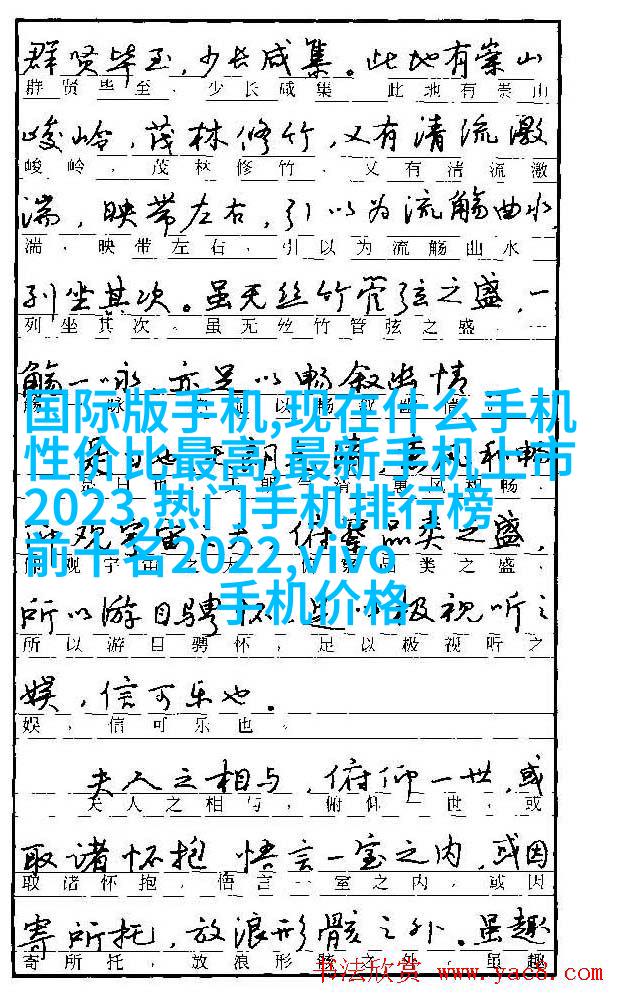 群贤毕至,少长咸集。此地有崇山
群贤毕至,少长咸集 此地有崇山
峻岭,茂林修竹,又有清流激
峻岭,茂林修竹,又有清流激
湍,映带左右,引以为流觞曲水,
湍,映带左右,引以为流觞曲水
列坐其次。虽无丝竹管弦之盛,一
列坐其次。虽无丝竹管弦之盛,一
觞一咏,亦足以畅叙幽情
国际版手机,现在什么手机
性价比最高,最新手机上市
2023,热门手机排行榜
前十名2022,vivo
手机价格
观宇宙之大,俯察品类之盛,
所以游目骋怀,足以极视听之
所以游目骋怀,足以极视听之
娱,信可乐也。
娱,信可乐也。
夫人之相与,俯仰一世,或
夫人之相与,俯仰一世,或
取诸怀抱 悟言一室之内,或因
取诸怀抱,悟言一室之内,或因
寄所托,放浪形骸之外。虽趣
寄所托,放浪形骸之外。虽趣
书法欣赏 www.yac8.com